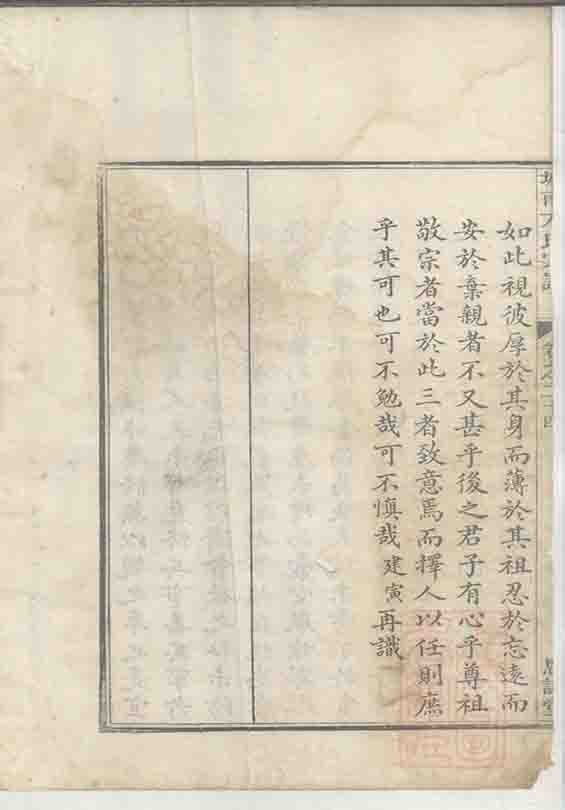 如此視彼厚於其身而薄於其祖忍於忘遠而
安於棄親者不又甚乎後之君子有心乎尊祖
敬宗者當於此三者致意焉而擇人以任則庶
乎其可也可不勉哉可不慎哉建寅再識